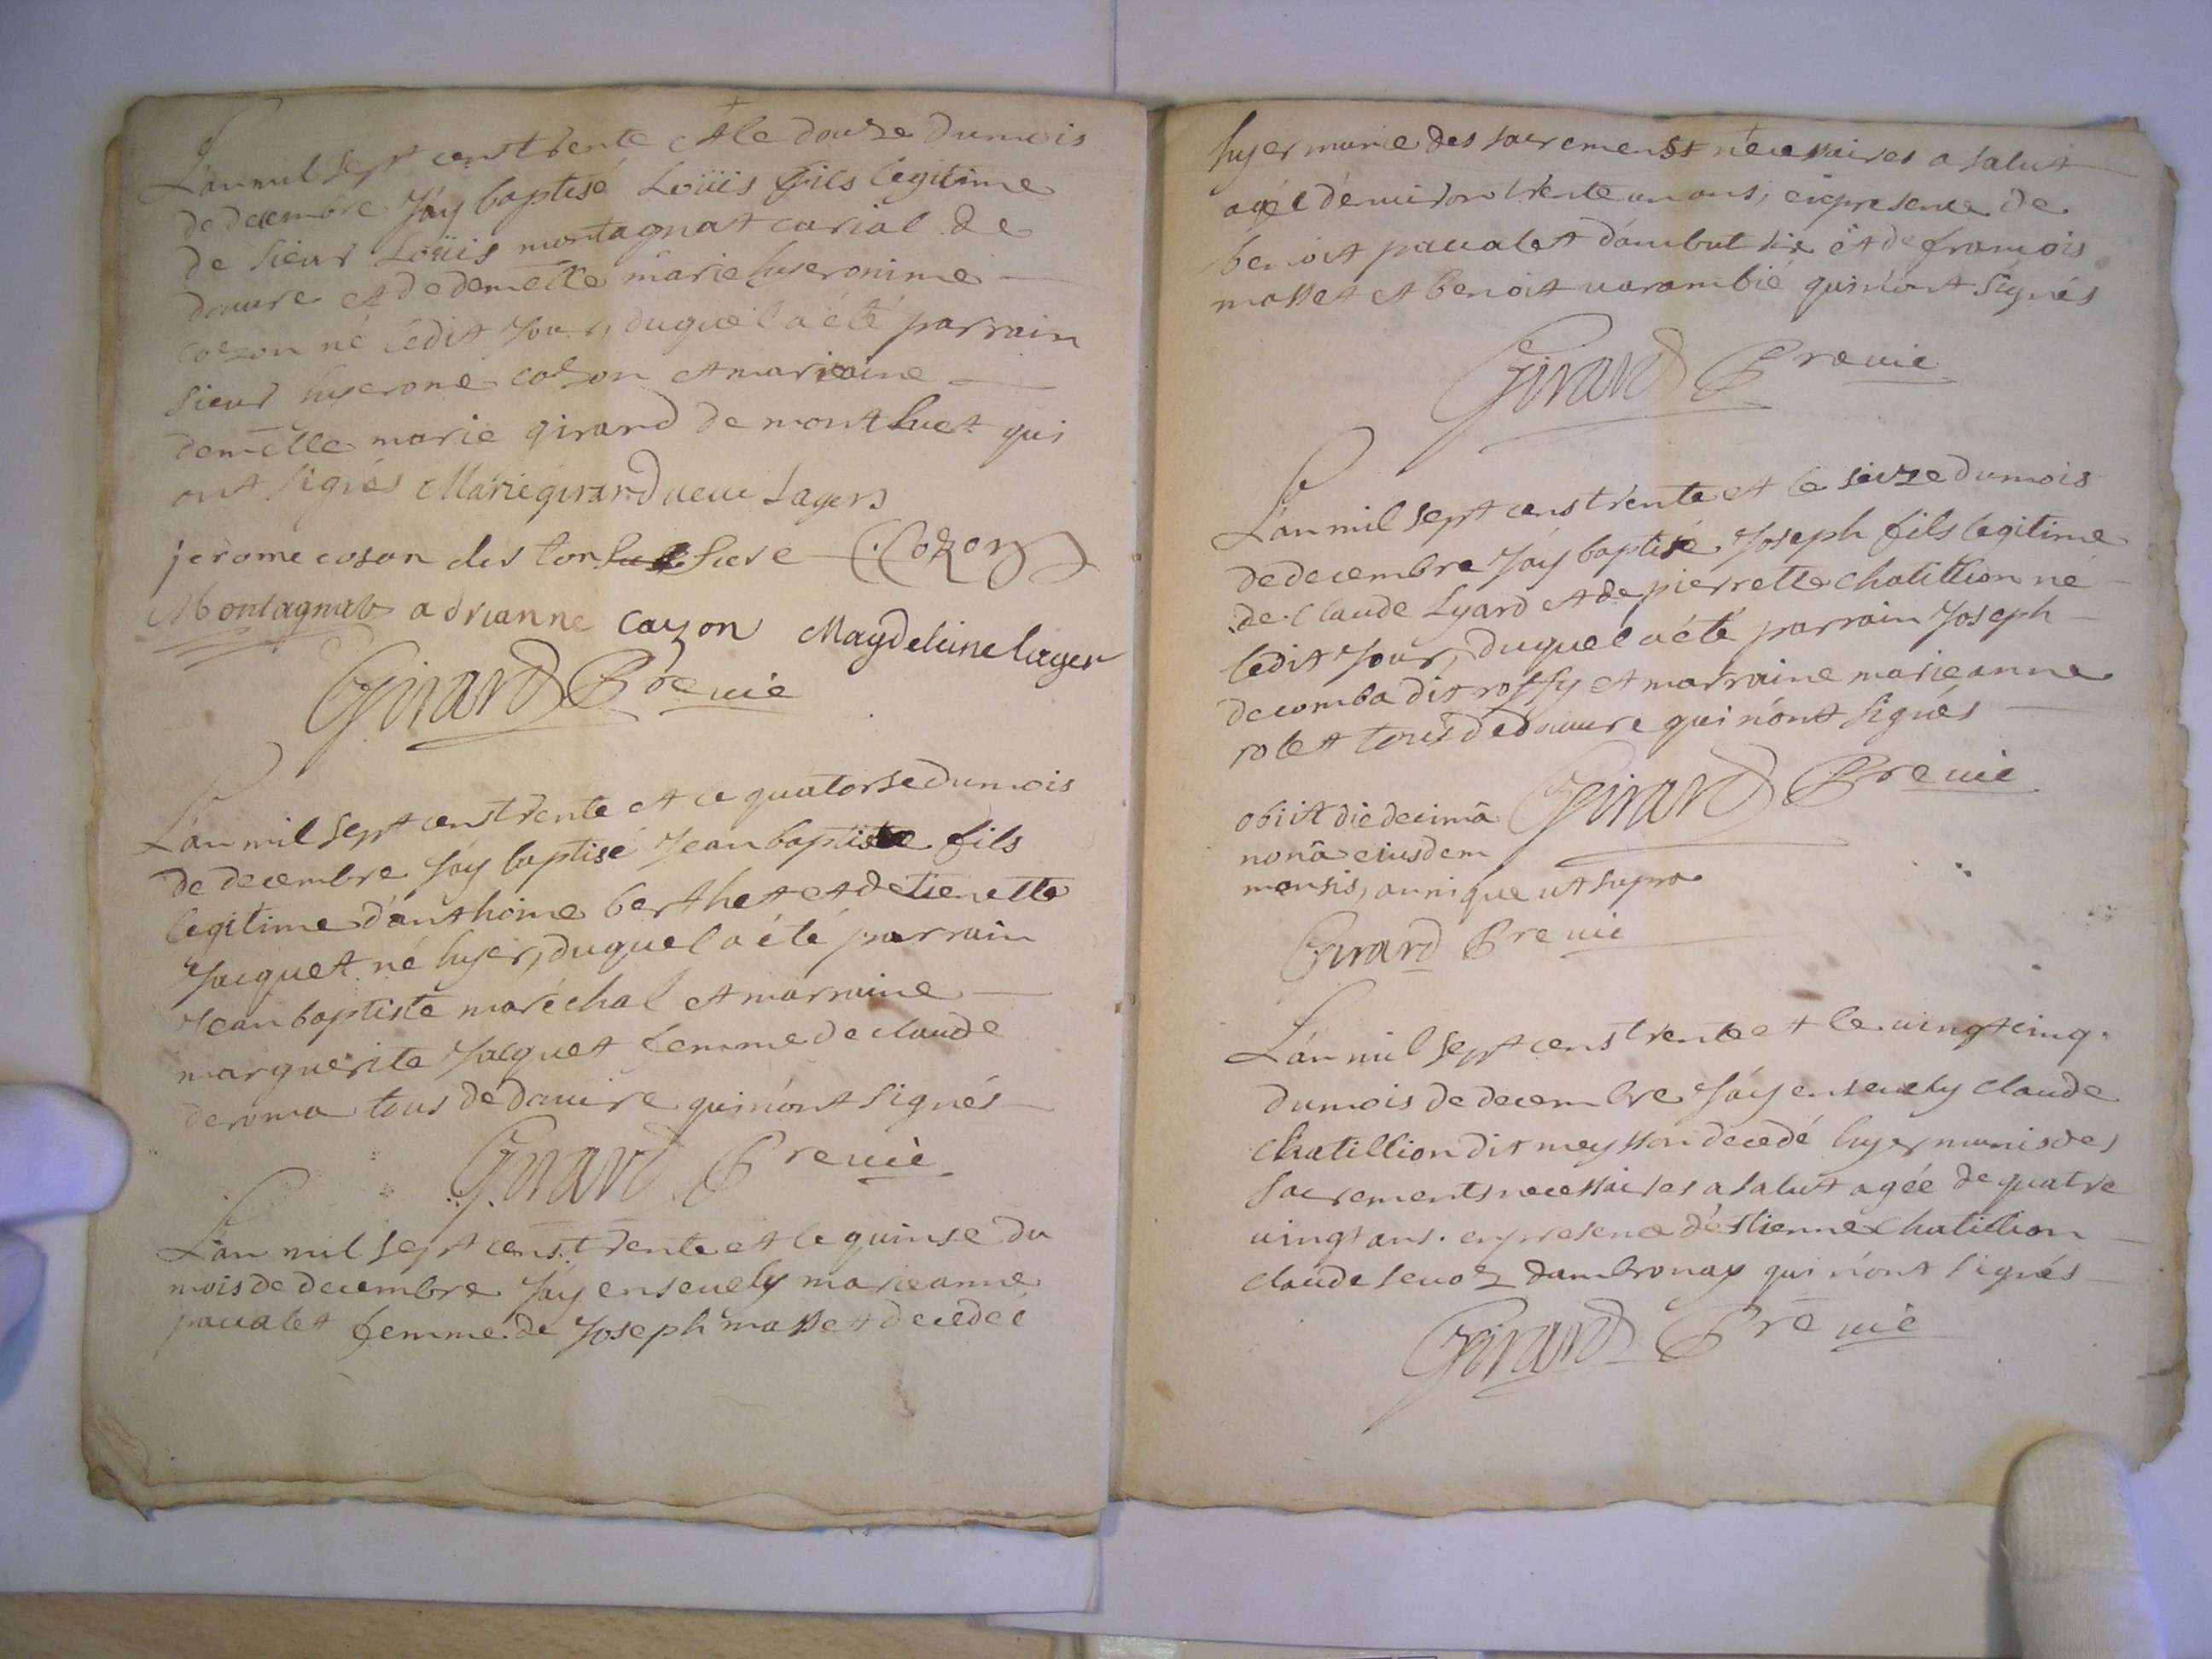 L'an mil sept cens trente et le douze du mois
de decembre j'ay baptisé Loüis fils legitime
de sieur Loüis montagnat curial de
druure et de demelle marie hyeronime
cozon né ledit jour, duquel a été parrain
sieur hyerome cozon et marraine
demelle marie girard de montluet qui
ont signés Marie girard veuve Lagers
jerome coson des C. Cozon
Montagnat adrianne cozon Magdeleine lager
Girard Pre vic
L'an mil sept cens trente et le quatorse du mois
de decembre j'ay baptisé jean baptiste fils
legitime d'anthoine berthet et d'etienette
jacquet né hyer, duquel a été parrain
jean baptiste maréchal et marraine
marguerite jacquet femme de claude
deroma tous de druire qui n'ont signés
Girard Pre vic
L'an mil sept cens trente et le quinse du
mois de decembre j'ay ensevely marieanne
pavalet femme de joseph masset decedeé
hyer munie des sacremenst necessaires a salut
ageé d'environ trente un ans, en presence de
benoit pavalet d'ambutrie et de francois
masset et benoit varambié qui n'ont signés
Girard Pre vic
L'an mil sept cens trente et le seize du mois
de decembre j'ay baptisé joseph fils legitime
de claude Lyard et de pierrette chatillion né
ledit jour, duquel a été parrain joseph
decomba dit roffy et marraine marieanne
rolet tous de druure qui n'ont signés
Girard Pre vic
obiit die decimâ
nonâ eiusdem
mensis, annique ut supra
Girard Pre vic
L'an mil sept cens trente et le vingt cinq
du mois de decembre j'ay ensevely claude
chatillion dit meysson decedé hyer munis des
sacrements necessaires a salut agée de quatre
vingt ans. en presence d'estienne chatillion
claude sevoz dambronay qui n'ont signés
Girard Pre vic